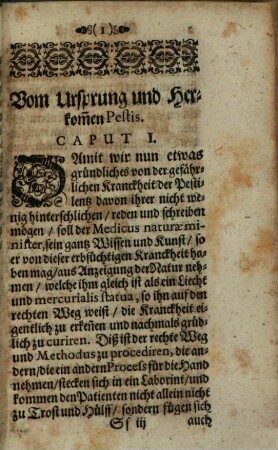 ( 1 )
Vom Ursprung und Her-
kom̃en Pestis.
CAPUT I.
DAmit wir nun etwas
gründliches von der gefähr-
lichen Kranckheit der Pesti-
lentz davon ihrer nicht we-
nig hinterschlichen / reden und schreiben
mögen / soll der Medicus naturæ mi-
nister, sein gantz Wissen und Kunst / so
er von dieser erbsüchtigen Kranckheit ha-
ben mag / aus Anzeigung der Natur neh-
men / welche ihm gleich ist als ein Liecht
und mercurialis statua, so ihn auf den
rechten Weg weist / die Kranckheit ei-
gentlich zu erkeñen und nachmals gründ-
lich zu curiren. Diß ist der rechte Weg
und Methodus zu procediren, die an-
dern / die ein andern Process für die Hand
nehmen / stecken sich in ein Laborint / und
kommen den Patienten nicht allein nicht
zu Trost und Hülff / sondern fügen sich
Sf iij auch